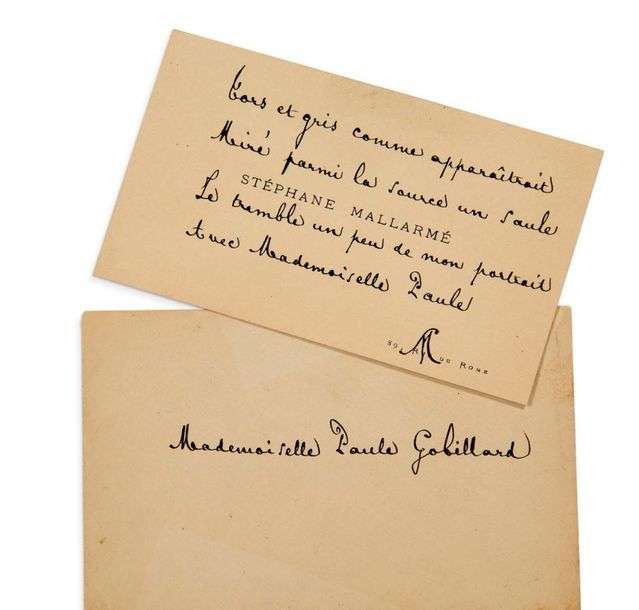 Tors et gris comme apparaîtrait
Miré parmi la source un saule
STÉPHANE MALLARMÉ
Je tremble un peu de mon portrait
Avec Mademoiselle Paule
M
89, Rue de Rome
Mademoiselle Paule Gobillard